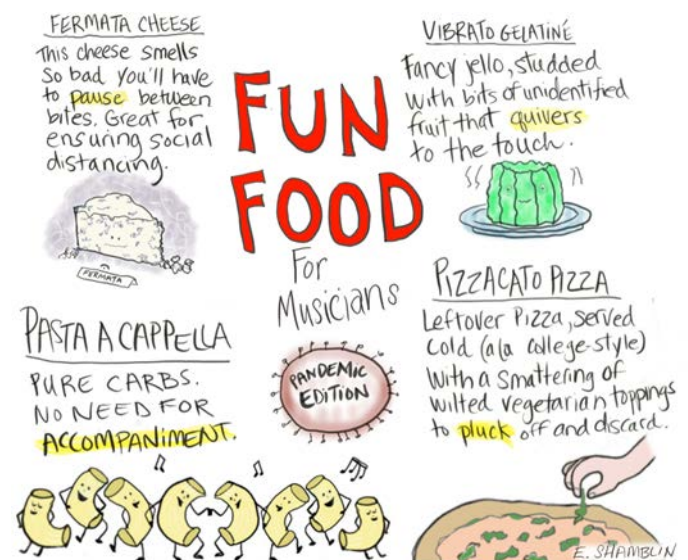 FERMATA CHEESE
This cheese smells
so bad you'll have
to pause between
bites. Great for
ensuring social
distancing.
FERMATA
FUN
FOOD
For
Musicians
PANDEMIC
EDITION
VIBRATO GELATINÉ
Fancy jello, studded
with bits of unidentified
fruit that quivers
to the touch.
PASTA A CAPPELLA
PURE CARBS.
NO NEED FOR
ACCOMPANIMENT.
PIZZACATO PIZZA
Leftover Pizza, served
Cold (a la college-style)
with a smattering of
wilted vegetarian toppings
to pluck off and discard.
E. SHAMBLIN